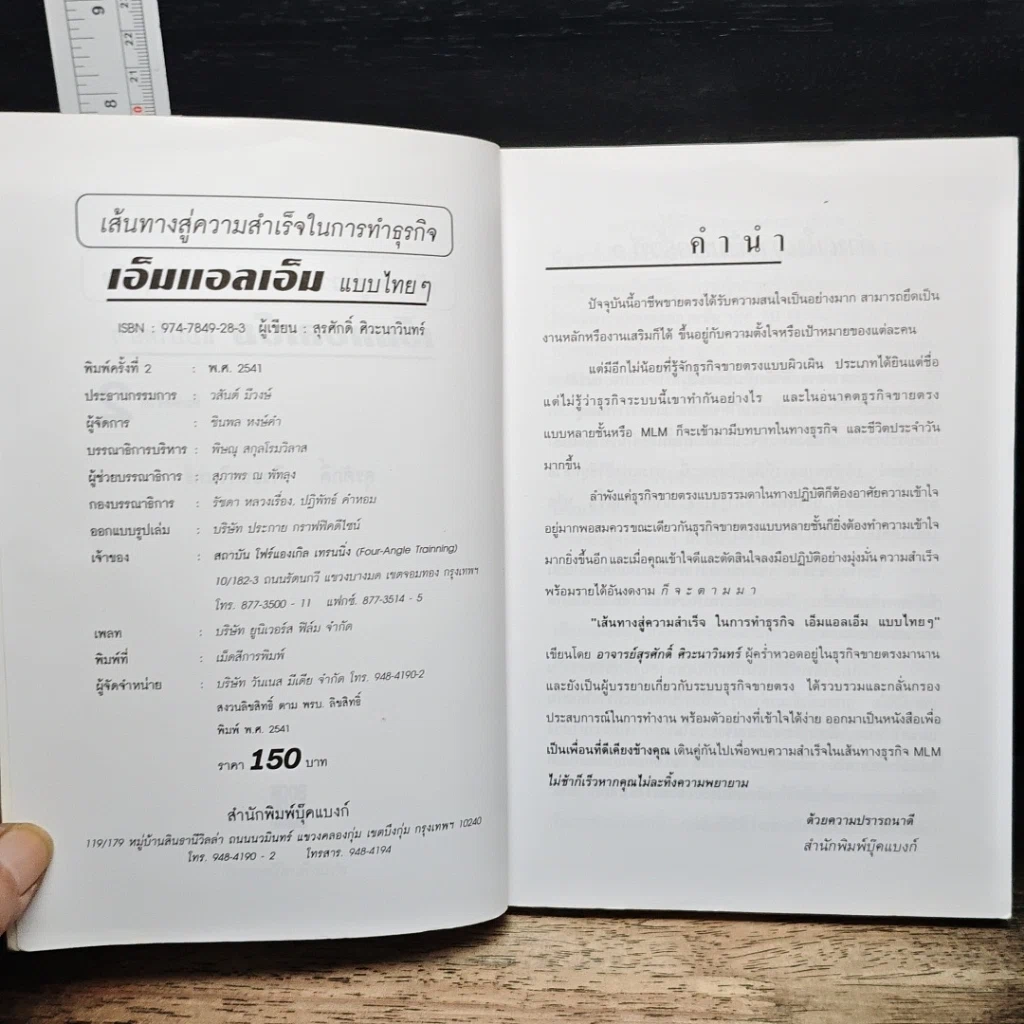 9
8
22
21
เส้นทางสู่ความสำเร็จในการทำธุรกิจ
เอ็มแอลเอ็ม แบบไทยๆ
ISBN : 974-7849-28-3 ผู้เขียน : สุรศักดิ์ ศิวะนาวินทร์
พิมพ์ครั้งที่ 2 : พ.ศ. 2541
ประธานกรรมการ : วสันต์ มีวงษ์
ผู้จัดการ : ชินพล หงษ์คำ
บรรณาธิการบริหาร : พิษณุ สกุลโรมวิลาส
ผู้ช่วยบรรณาธิการ : สุภาพร ณ พัทลุง
กองบรรณาธิการ : รัชดา หลวงเรื่อง, ปฏิพัทธ์ คำหอม
ออกแบบรูปเล่ม : บริษัท ประกาย กราฟฟิคดีไซน์
เจ้าของ : สถาบัน โฟร์แองเกิล เทรนนิ่ง (Four-Angle Trainning)
10/182-3 ถนนรัตนกวี แขวงบางมด เขตจอมทอง กรุงเทพฯ
โทร. 877-3500 - 11 แฟกซ์. 877-3514 - 5
เพลท : บริษัท ยูนิเวอร์ส ฟิล์ม จำกัด
พิมพ์ที่ : เม็ดสีการพิมพ์
ผู้จัดจำหน่าย : บริษัท วันเนส มีเดีย จำกัด โทร. 948-4190-2
สงวนลิขสิทธิ์ ตาม พรบ. ลิขสิทธิ์
พิมพ์ พ.ศ. 2541
ราคา 150 บาท
สำนักพิมพ์บุ๊คแบงก์
119/179 หมู่บ้านสินธานีวิลล่า ถนนนวมินทร์ แขวงคลองกุ่ม เขตบึงกุ่ม กรุงเทพฯ 10240
โทร. 948-4190 - 2 โทรสาร. 948-4194
คำนำ
ปัจจุบันนี้อาชีพขายตรงได้รับความสนใจเป็นอย่างมาก สามารถยึดเป็น
งานหลักหรืองานเสริมก็ได้ ขึ้นอยู่กับความตั้งใจหรือเป้าหมายของแต่ละคน
แต่มีอีกไม่น้อยที่รู้จักธุรกิจขายตรงแบบผิวเผิน ประเภทได้ยินแต่ชื่อ
แต่ไม่รู้ว่าธุรกิจระบบนี้เขาทำกันอย่างไร และในอนาคตธุรกิจขายตรง
แบบหลายชั้นหรือ MLM ก็จะเข้ามามีบทบาทในทางธุรกิจ และชีวิตประจำวัน
มากขึ้น
ลำพังแค่ธุรกิจขายตรงแบบธรรมดาในทางปฏิบัติก็ต้องอาศัยความเข้าใจ
อยู่มากพอสมควรขณะเดียวกันธุรกิจขายตรงแบบหลายชั้นก็ยิ่งต้องทำความเข้าใจ
มากยิ่งขึ้นอีก และเมื่อคุณเข้าใจดีและตัดสินใจลงมือปฏิบัติอย่างมุ่งมั่น ความสำเร็จ
พร้อมรายได้อันงดงาม ก็ จ ะ ต า ม ม า
"เส้นทางสู่ความสำเร็จ ในการทำธุรกิจ เอ็มแอลเอ็ม แบบไทยๆ"
เขียนโดย อาจารย์สุรศักดิ์ ศิวะนาวินทร์ ผู้คร่ำหวอดอยู่ในธุรกิจขายตรงมานาน
และยังเป็นผู้บรรยายเกี่ยวกับระบบธุรกิจขายตรง ได้รวบรวมและกลั่นกรอง
ประสบการณ์ในการทำงาน พร้อมตัวอย่างที่เข้าใจได้ง่าย ออกมาเป็นหนังสือเพื่อ
เป็นเพื่อนที่ดีเคียงข้างคุณ เดินคู่กันไปเพื่อพบความสำเร็จในเส้นทางธุรกิจ MLM
ไม่ช้าก็เร็วหากคุณไม่ละทิ้งความพยายาม
ด้วยความปรารถนาดี
สำนักพิมพ์บุ๊คแบงก์